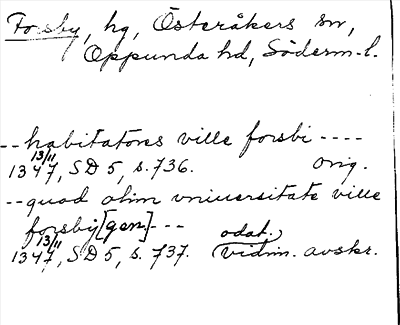 Forsby, hg, Österåkers sn,
Oppunda hd, Söderm. l.
-- habitatores ville forsbi ----
1347 13/11, SD 5, s. 736. orig.
-- quod olim vniuersitate ville
forsby [gen.] ---
1347 13/11, SD 5, s. 737. odat. vidim. avskr.